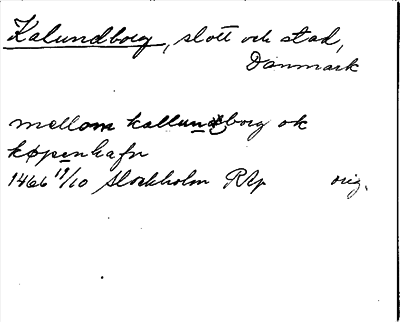 Kalundborg, slott och stad,
Danmark
mellom kallundborg ok
køpenhafn
1466 19/10 Stockholm RAp orig.